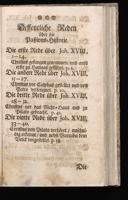 Oeffentliche Reden
über die
Passions-Historie.
Die erste Rede über Joh. XVIII,
1-14.
Christus gefangen genommen, und erst-
lich zu Hannas geführt. p. 1.
Die andere Rede über Joh. XVIII,
15-27.
Christus vor Caiphas geführt und von
Petro verleugnet. p. 20.
Die dritte Rede über Joh. XVIII,
28-32.
Christus vor das Richt-Haus und zu
Pilato gebracht. p. 41.
Die vierte Rede über Joh. XVIII,
33-40.
Christus von Pilato verhört,
und dem Barrabas dem
Volck vorgestellet. p.
Die